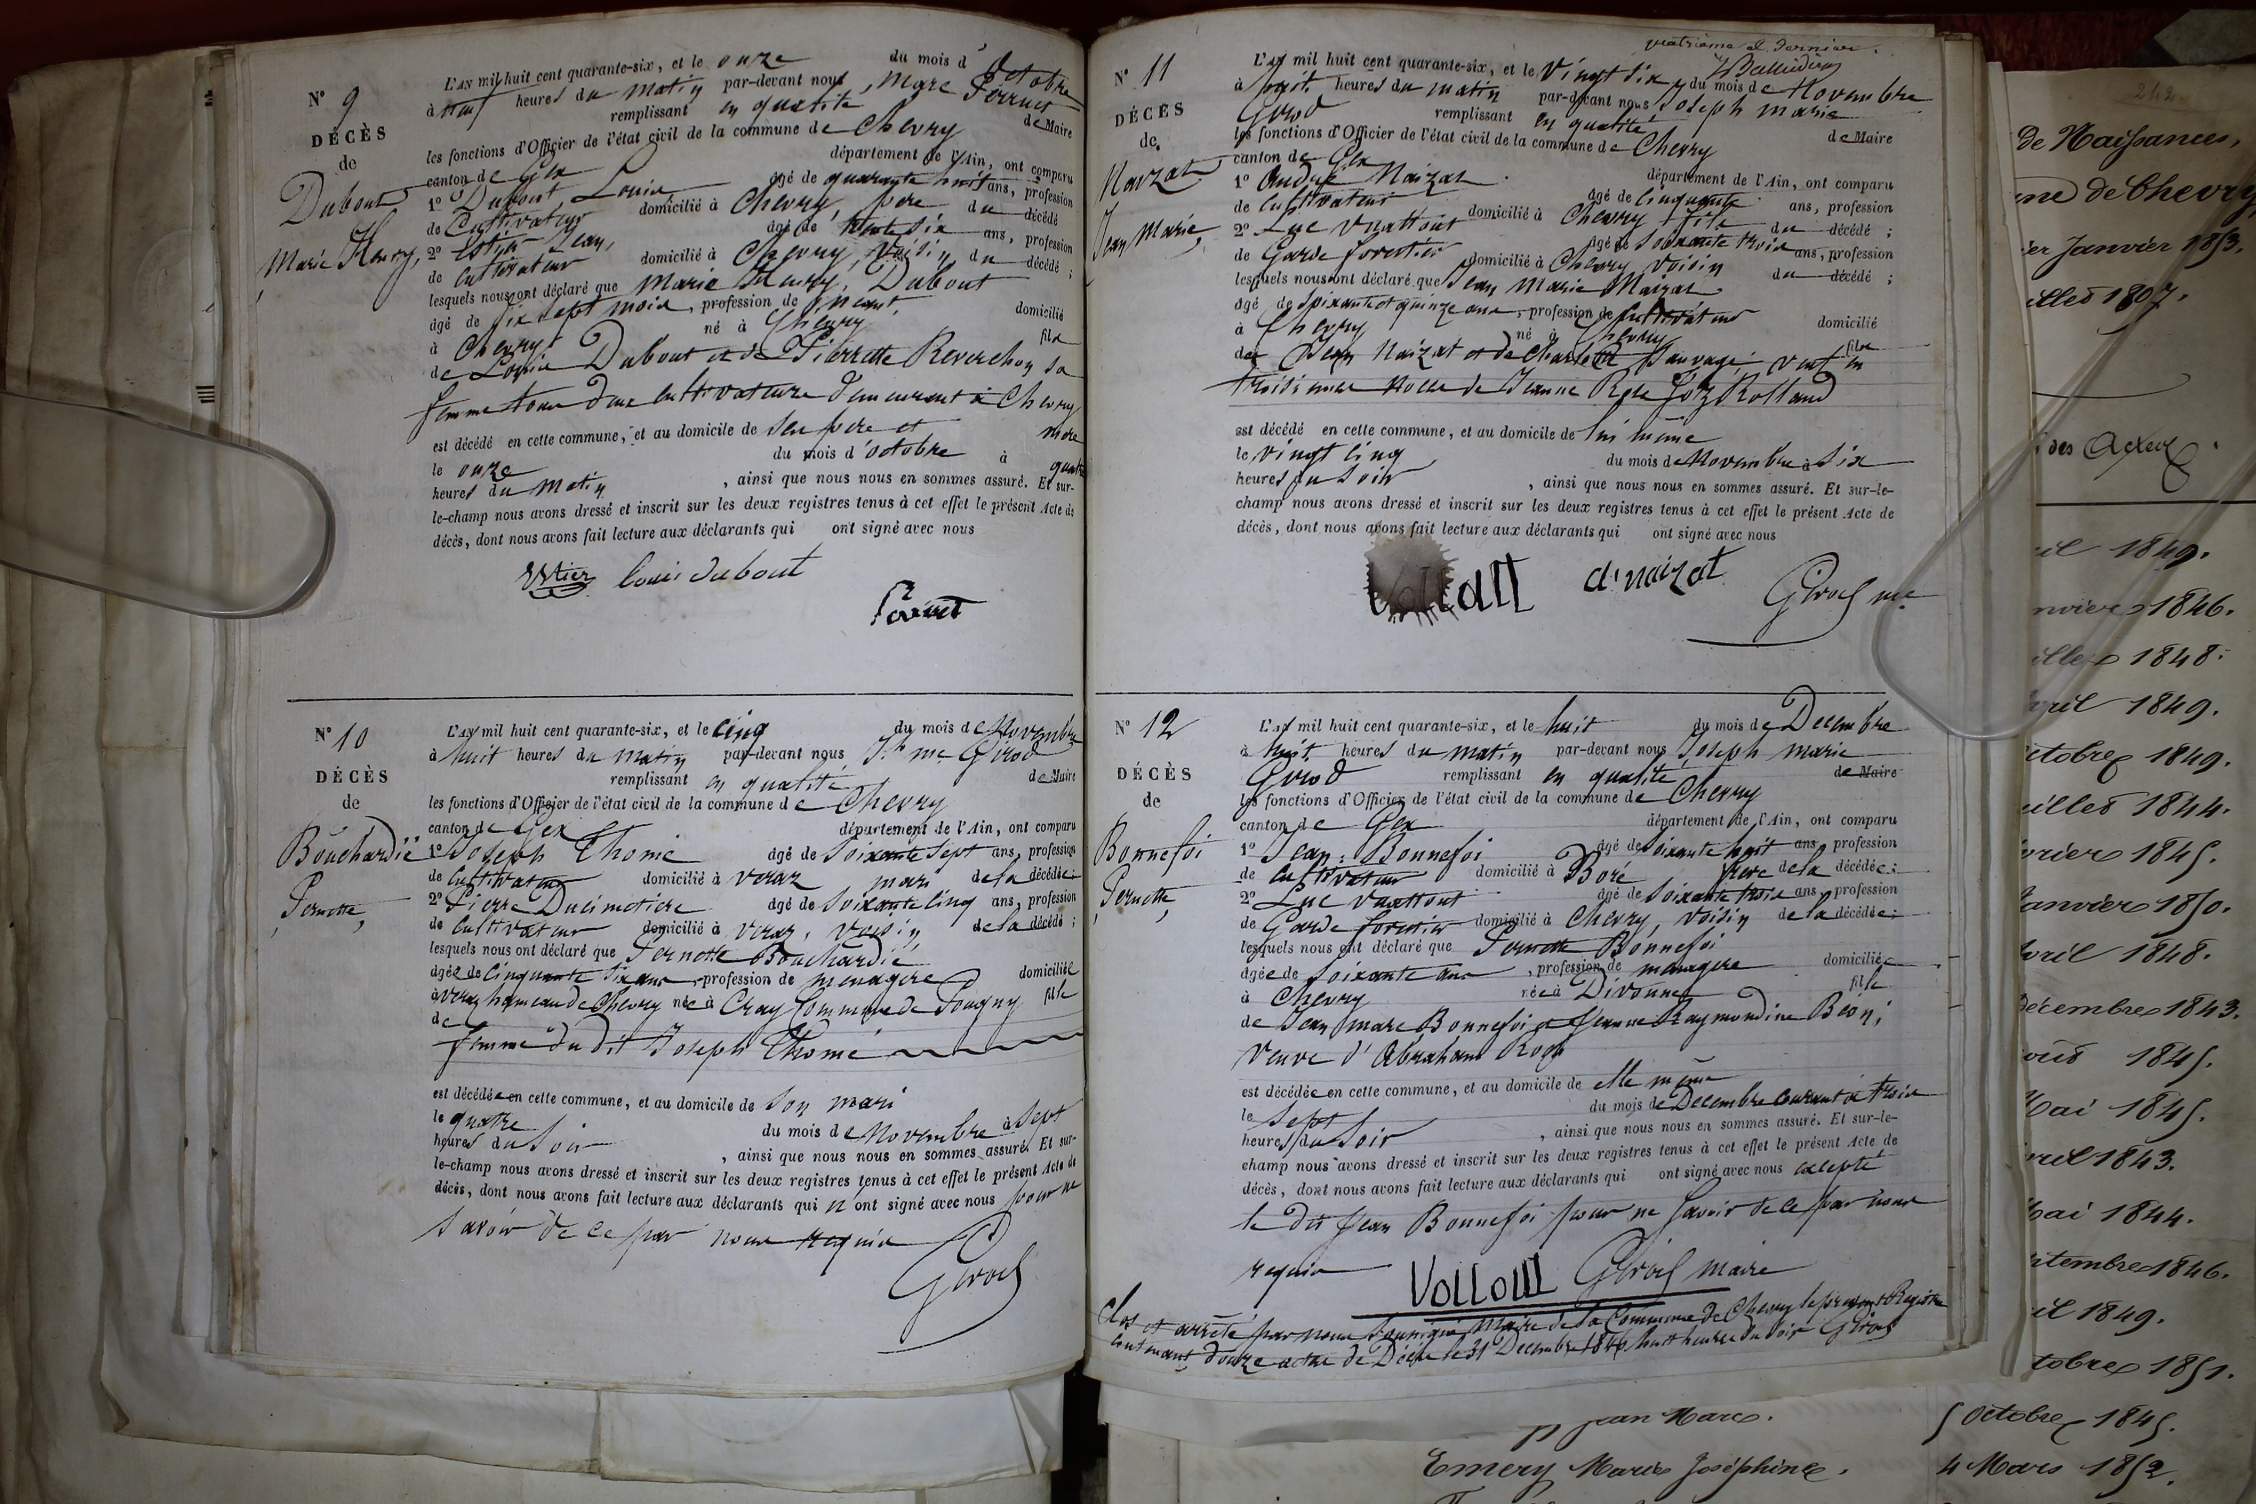 N° 9
DÉCÈS
de
Dubout
Marie Henry,
L'AN mil huit cent quarante-six, et le onze du mois d'Octobre
à neuf heures du matin par-devant nous, Marc Perruet
remplissant en qualité de Maire
les fonctions d'Officier de l'état civil de la commune de Chevry
canton de Gex département de l'Ain, ont comparu
1° Dubout, Louis âgé de quarante huit ans, profession
de Cultivateur domicilié à Chevry, père du décédé
2° Estier Jean, âgé de trente six ans, profession
de cultivateur domicilié à Chevry, Voisin du décédé ;
lesquels nous ont déclaré que Marie Henry, Dubout
âgé de dix sept mois, profession de Néant, domicilié
à Chevry né à Chevry fils
de Louis Dubout et de Pierrette Reverchon sa
femme tous deux Cultivateurs demeurant à Chevry
est décédé en cette commune, et au domicile de Ses père et mère
le onze du mois d'octobre à quatre
heures du matin, ainsi que nous nous en sommes assuré. Et sur-
le-champ nous avons dressé et inscrit sur les deux registres tenus à cet effet le présent Acte de
décès, dont nous avons fait lecture aux déclarants qui ont signé avec nous
Estier Louis dubout
Perruet
N° 10
DÉCÈS
de
Bouchardié
Pernette,
L'AN mil huit cent quarante-six, et le cinq du mois de Novembre
à huit heures du matin par-devant nous J.h m.e Girod
remplissant en qualité de Maire
les fonctions d'Officier de l'état civil de la commune de Chevry
canton de Gex département de l'Ain, ont comparu
1° Joseph Thomé âgé de Soixante Sept ans, profession
de Cultivateur domicilié à Veraz mari de la décédée ;
2° Pierre Ducimetière âgé de Soixante cinq ans, profession
de Cultivateur domicilié à Veraz, Voisin de la décédée ;
lesquels nous ont déclaré que Pernette Bouchardié
âgée de cinquante six ans, profession de ménagère domiciliée
à Veraz hameau de Chevry née à Cray Commune de Pougny fille
de
femme du dit Joseph Thomé
est décédée en cette commune, et au domicile de Son mari
le quatre du mois de Novembre à Sept
heures du Soir, ainsi que nous nous en sommes assuré. Et sur-
le-champ nous avons dressé et inscrit sur les deux registres tenus à cet effet le présent Acte de
décès, dont nous avons fait lecture aux déclarants qui n'ont signé avec nous pour ne
Savoir de ce par nous requis
Girod
quatrième et dernier.
N° 11
DÉCÈS
de
Naizat
Jean Marie,
L'AN mil huit cent quarante-six, et le Vingt Six du mois de Novembre
à huit heures du matin par-devant nous, Joseph marie
Girod remplissant en qualité de Maire
les fonctions d'Officier de l'état civil de la commune de Chevry
canton de Gex département de l'Ain, ont comparu
1° André Naizat âgé de cinquante ans, profession
de Cultivateur domicilié à Chevry fils du décédé ;
2° Luc Vuattout âgé de Soixante trois ans, profession
de Garde forestier domicilié à Chevry Voisin du décédé ;
lesquels nous ont déclaré que Jean Marie Naizat
âgé de Soixante et quinze ans, profession de Cultivateur domicilié
à Chevry né à Chevry fils
de Jean Naizat et de Charlotte Sauvage, Veuf en
troisiemes Noces de Jeanne Rolland
est décédé en cette commune, et au domicile de lui même
le Vingt Cinq du mois de Novembre à Six
heures du Soir, ainsi que nous nous en sommes assuré. Et sur-le-
champ nous avons dressé et inscrit sur les deux registres tenus à cet effet le présent Acte de
décès, dont nous avons fait lecture aux déclarants qui ont signé avec nous
Vottatt a. naizat Girod m.e
N° 12
DÉCÈS
de
Bonnefoi
Pernette,
L'AN mil huit cent quarante-six, et le huit du mois de Décembre
à huit heures du matin par-devant nous Joseph marie
Girod remplissant en qualité de Maire
les fonctions d'Officier de l'état civil de la commune de Chevry
canton de Gex département de l'Ain, ont comparu
1° Jean Bonnefoi âgé de soixante huit ans profession
de Cultivateur domicilié à Boré frère de la décédée ;
2° Luc Vuattout âgé de Soixante trois ans, profession
de Garde forestier domicilié à Chevry, Voisin de la décédée ;
lesquels nous ont déclaré que Pernette Bonnefoi
âgée de Soixante ans, profession de ménagère domiciliée
à Chevry née à Divonne fille
de Jean marc Bonnefoi et Jeanne Raymondine Béon,
Veuve d'Abraham Roch
est décédée en cette commune, et au domicile de elle même
le Sept du mois de Décembre courant à trois
heures du Soir, ainsi que nous nous en sommes assuré. Et sur-le-
champ nous avons dressé et inscrit sur les deux registres tenus à cet effet le présent Acte de
décès, dont nous avons fait lecture aux déclarants qui ont signé avec nous excepté
le dit Jean Bonnefoi pour ne Savoir de ce par nous
requis Vottoutt Girod maire
Clos et arrêté par nous Soussigné Maire de la Commune de Chevry le présent Registre
Contenant douze actes de Décès le 31 Décembre 1846 huit heures du Soir Girod
242
de Naissances,
de Chevry
Janvier 1853.
1807.
des Actes
1849.
1846.
1848.
1849.
1849.
1844.
1845.
Janvier 1850.
1848.
Décembre 1843.
1845.
Mai 1845.
1843.
Mai 1844.
1846.
1849.
1851.
Jean Marc. 5 Octobre 1845.
Emery Marie Joséphine. 4 Mars 1852.